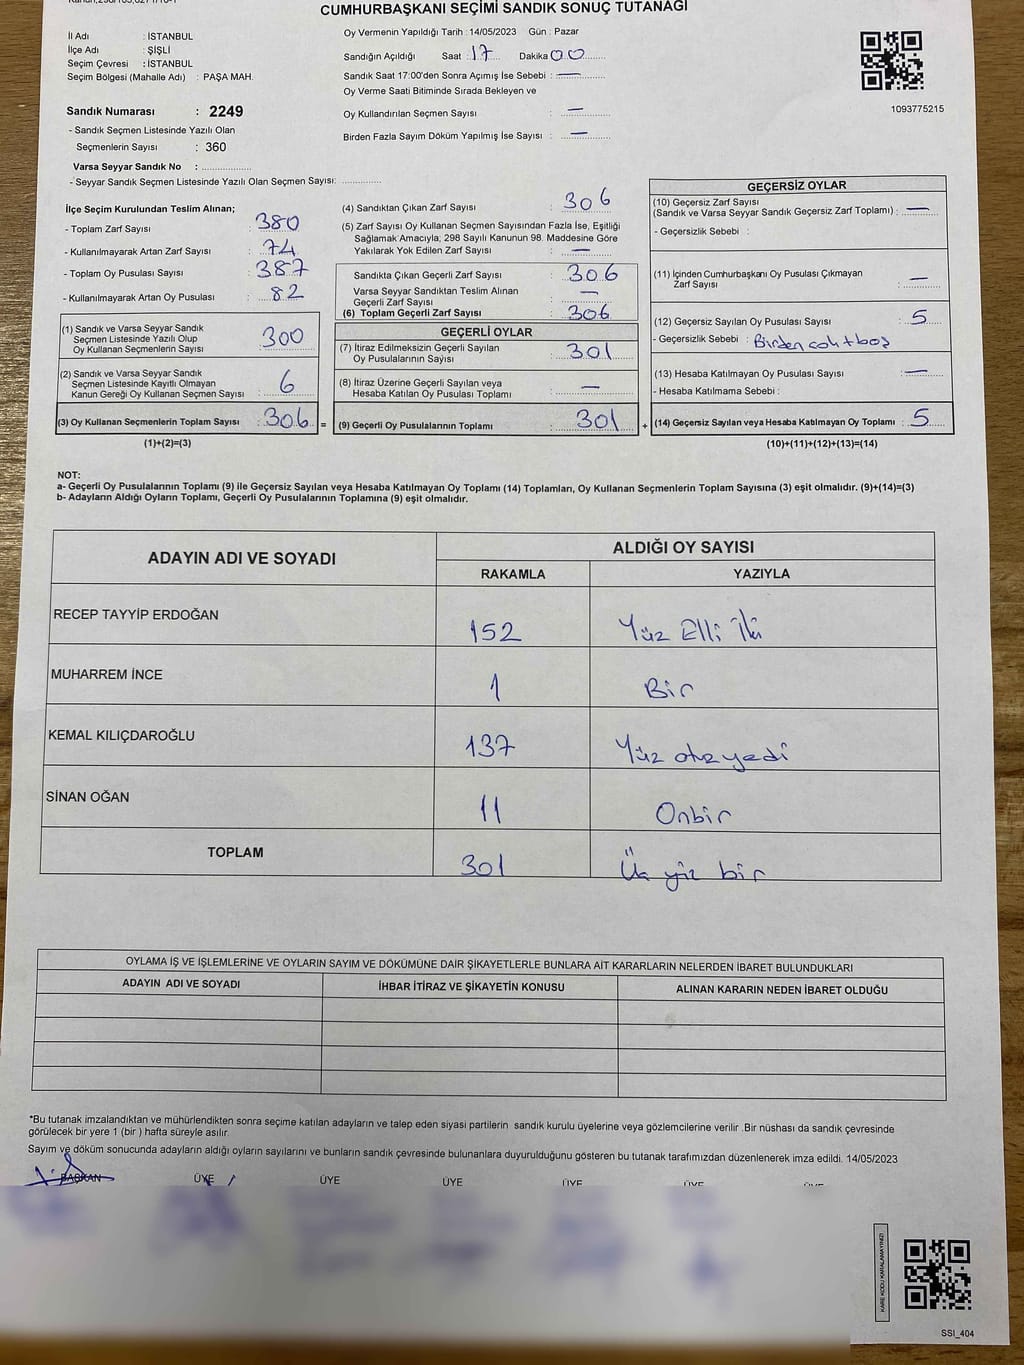 CUMHURBAŞKANI SEÇİMİ SANDIK SONUÇ TUTANAĞI
İl Adı : İSTANBUL
İlçe Adı : ŞİŞLİ
Seçim Çevresi : İSTANBUL
Seçim Bölgesi (Mahalle Adı) : PAŞA MAH.
Sandık Numarası : 2249
- Sandık Seçmen Listesinde Yazılı Olan
Seçmenlerin Sayısı : 360
Varsa Seyyar Sandık No :
- Seyyar Sandık Seçmen Listesinde Yazılı Olan Seçmen Sayısı:
Oy Vermenin Yapıldığı Tarih : 14/05/2023 Gün : Pazar
Sandığın Açıldığı Saat : 17 Dakika 00
Sandık Saat 17:00'den Sonra Açımış İse Sebebi : —
Oy Verme Saati Bitiminde Sırada Bekleyen ve
Oy Kullandırılan Seçmen Sayısı : —
Birden Fazla Sayım Döküm Yapılmış İse Sayısı : —
1093775215
İlçe Seçim Kurulundan Teslim Alınan;
- Toplam Zarf Sayısı : 380
- Kullanılmayarak Artan Zarf Sayısı : 74
- Toplam Oy Pusulası Sayısı : 387
- Kullanılmayarak Artan Oy Pusulası : 82
(1) Sandık ve Varsa Seyyar Sandık
Seçmen Listesinde Yazılı Olup
Oy Kullanan Seçmenlerin Sayısı : 300
(2) Sandık ve Varsa Seyyar Sandık
Seçmen Listesinde Kayıtlı Olmayan
Kanun Gereği Oy Kullanan Seçmen Sayısı : 6
(3) Oy Kullanan Seçmenlerin Toplam Sayısı : 306 =
(1)+(2)=(3)
(4) Sandıktan Çıkan Zarf Sayısı : 306
(5) Zarf Sayısı Oy Kullanan Seçmen Sayısından Fazla İse, Eşitliği
Sağlamak Amacıyla, 298 Sayılı Kanunun 98. Maddesine Göre
Yakılarak Yok Edilen Zarf Sayısı : —
Sandıkta Çıkan Geçerli Zarf Sayısı : 306
Varsa Seyyar Sandıktan Teslim Alınan
Geçerli Zarf Sayısı : —
(6) Toplam Geçerli Zarf Sayısı : 306
GEÇERLİ OYLAR
(7) İtiraz Edilmeksizin Geçerli Sayılan
Oy Pusulalarının Sayısı : 301
(8) İtiraz Üzerine Geçerli Sayılan veya
Hesaba Katılan Oy Pusulası Toplamı : —
(9) Geçerli Oy Pusulalarının Toplamı : 301 +
GEÇERSİZ OYLAR
(10) Geçersiz Zarf Sayısı
(Sandık ve Varsa Seyyar Sandık Geçersiz Zarf Toplamı) : —
- Geçersizlik Sebebi :
(11) İçinden Cumhurbaşkanı Oy Pusulası Çıkmayan
Zarf Sayısı : —
(12) Geçersiz Sayılan Oy Pusulası Sayısı : 5
- Geçersizlik Sebebi : Birden
(13) Hesaba Katılmayan Oy Pusulası Sayısı : —
- Hesaba Katılmama Sebebi :
(14) Geçersiz Sayılan veya Hesaba Katılmayan Oy Toplamı : 5
(10)+(11)+(12)+(13)=(14)
NOT:
a- Geçerli Oy Pusulalarının Toplamı (9) ile Geçersiz Sayılan veya Hesaba Katılmayan Oy Toplamı (14) Toplamları, Oy Kullanan Seçmenlerin Toplam Sayısına (3) eşit olmalıdır. (9)+(14)=(3)
b- Adayların Aldığı Oyların Toplamı, Geçerli Oy Pusulalarının Toplamına (9) eşit olmalıdır.
ADAYIN ADI VE SOYADI ALDIĞI OY SAYISI
RAKAMLA YAZIYLA
RECEP TAYYİP ERDOĞAN 152 Yüz Elli İki
MUHARREM İNCE 1 Bir
KEMAL KILIÇDAROĞLU 137 Yüz otuz yedi
SİNAN OĞAN 11 Onbir
TOPLAM 301 Üç yüz bir
OYLAMA İŞ VE İŞLEMLERİNE VE OYLARIN SAYIM VE DÖKÜMÜNE DAİR ŞİKAYETLERLE BUNLARA AİT KARARLARIN NELERDEN İBARET BULUNDUKLARI
ADAYIN ADI VE SOYADI İHBAR İTİRAZ VE ŞİKAYETİN KONUSU ALINAN KARARIN NEDEN İBARET OLDUĞU
*Bu tutanak imzalandıktan ve mühürlendikten sonra seçime katılan adayların ve talep eden siyasi partilerin sandık kurulu üyelerine veya gözlemcilerine verilir .Bir nüshası da sandık çevresinde
görülecek bir yere 1 (bir ) hafta süreyle asılır.
Sayım ve döküm sonucunda adayların aldığı oyların sayılarını ve bunların sandık çevresinde bulunanlara duyurulduğunu gösteren bu tutanak tarafımızdan düzenlenerek imza edildi. 14/05/2023
BAŞKAN ÜYE ÜYE ÜYE ÜYE ÜYE
KARE KODU KARALAMAYINIZ!
SSI_404